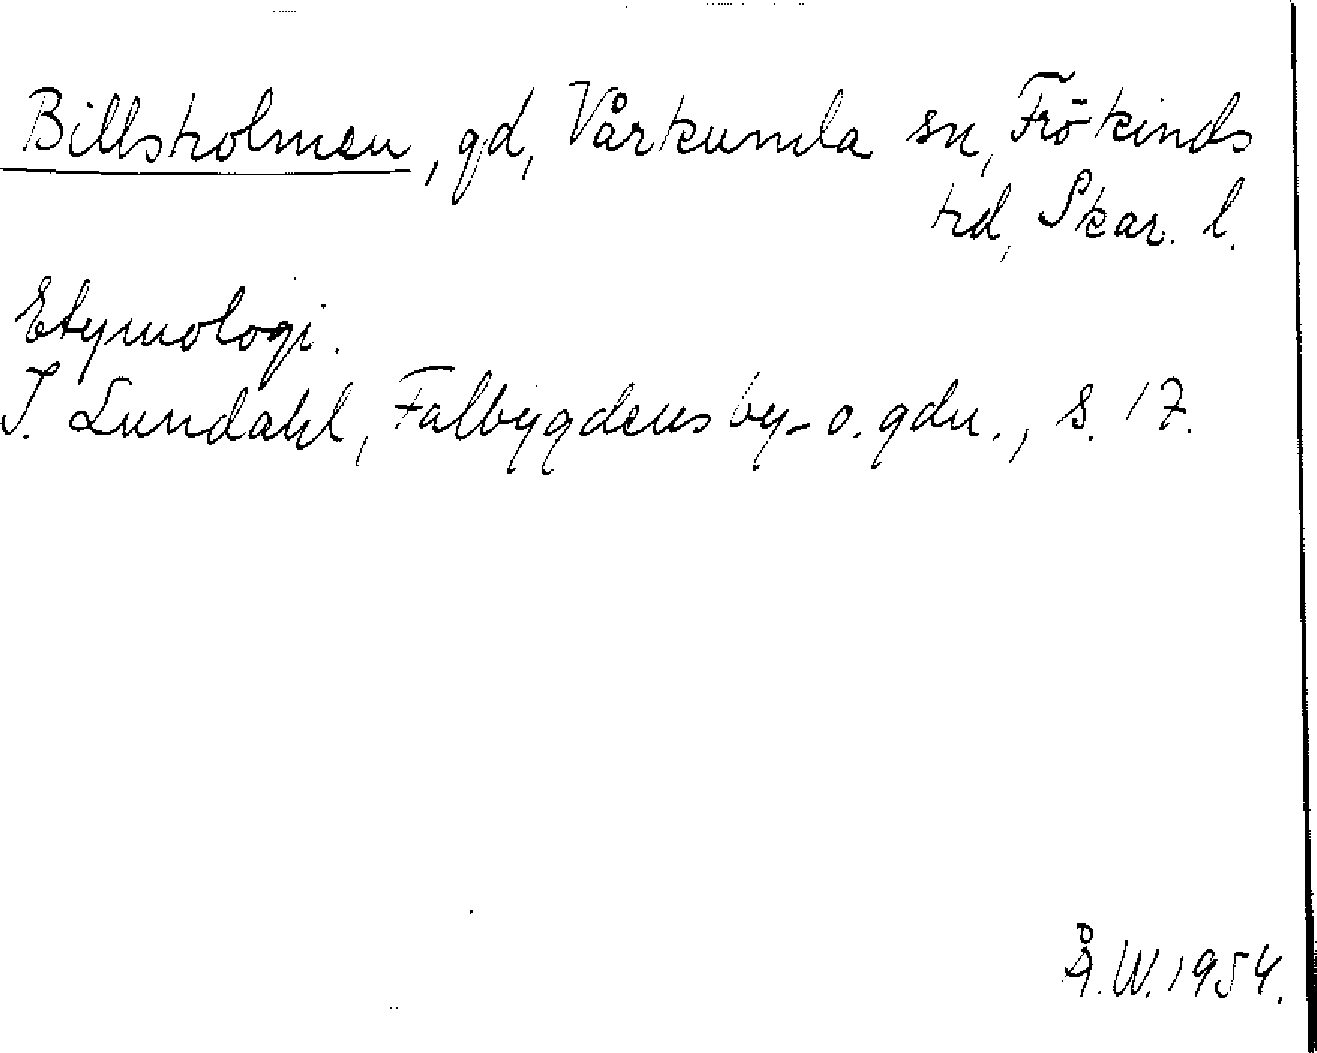 Billsholmen, gd, Vårkumla sn, Frökinds
hd, Skar. l.
Etymologi.
I. Lundahl, Falbygdens by- o. gdn., s. 17.
Å.W. 1954.